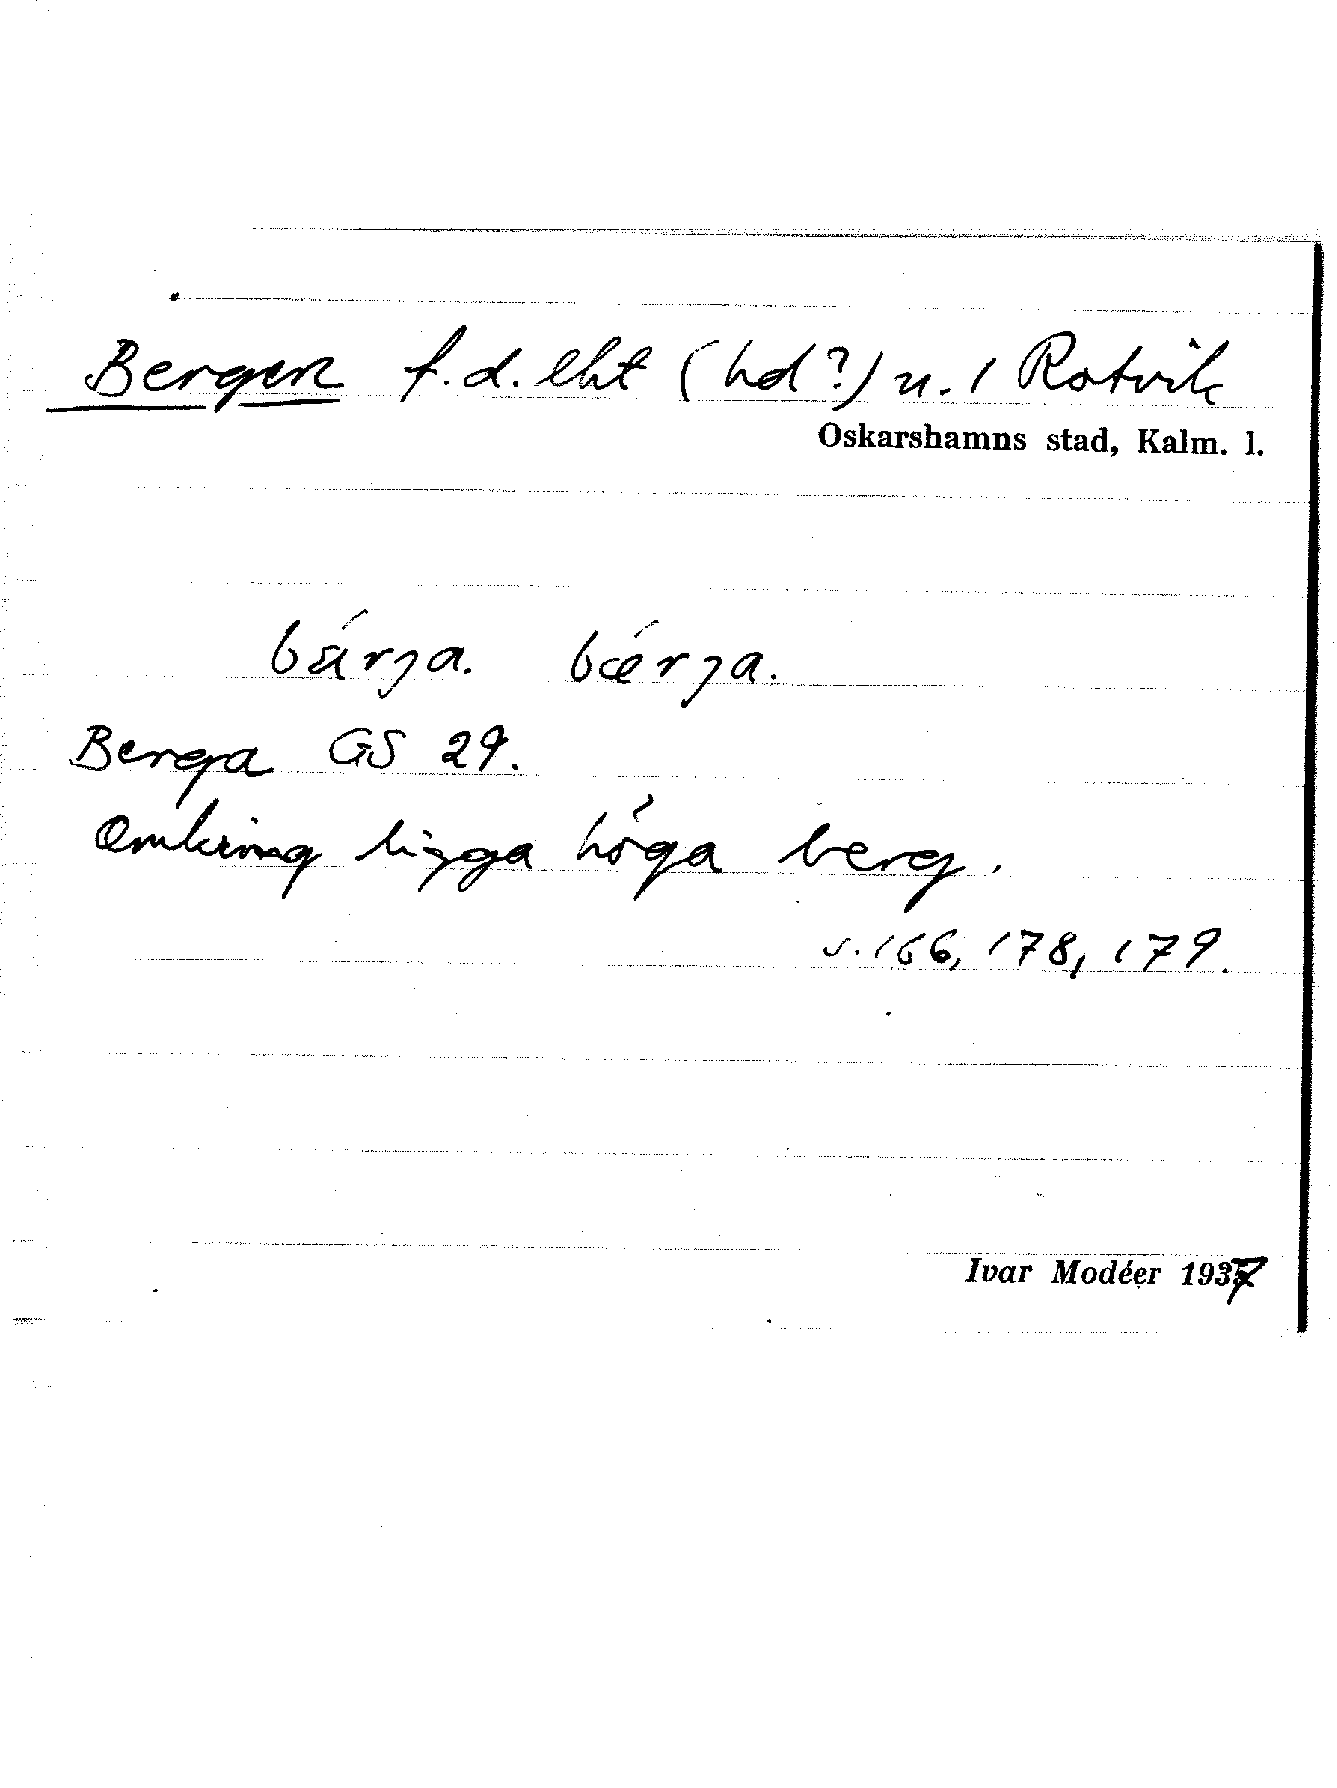 Bergen f.d. lht (hd?) u. / Rotvik
Oskarshamns stad, Kalm. l.
bä́rja. bǽrja.
Berga GS 29.
Omkring ligga höga berg.
s. 166, 178, 179.
Ivar Modéer 1937